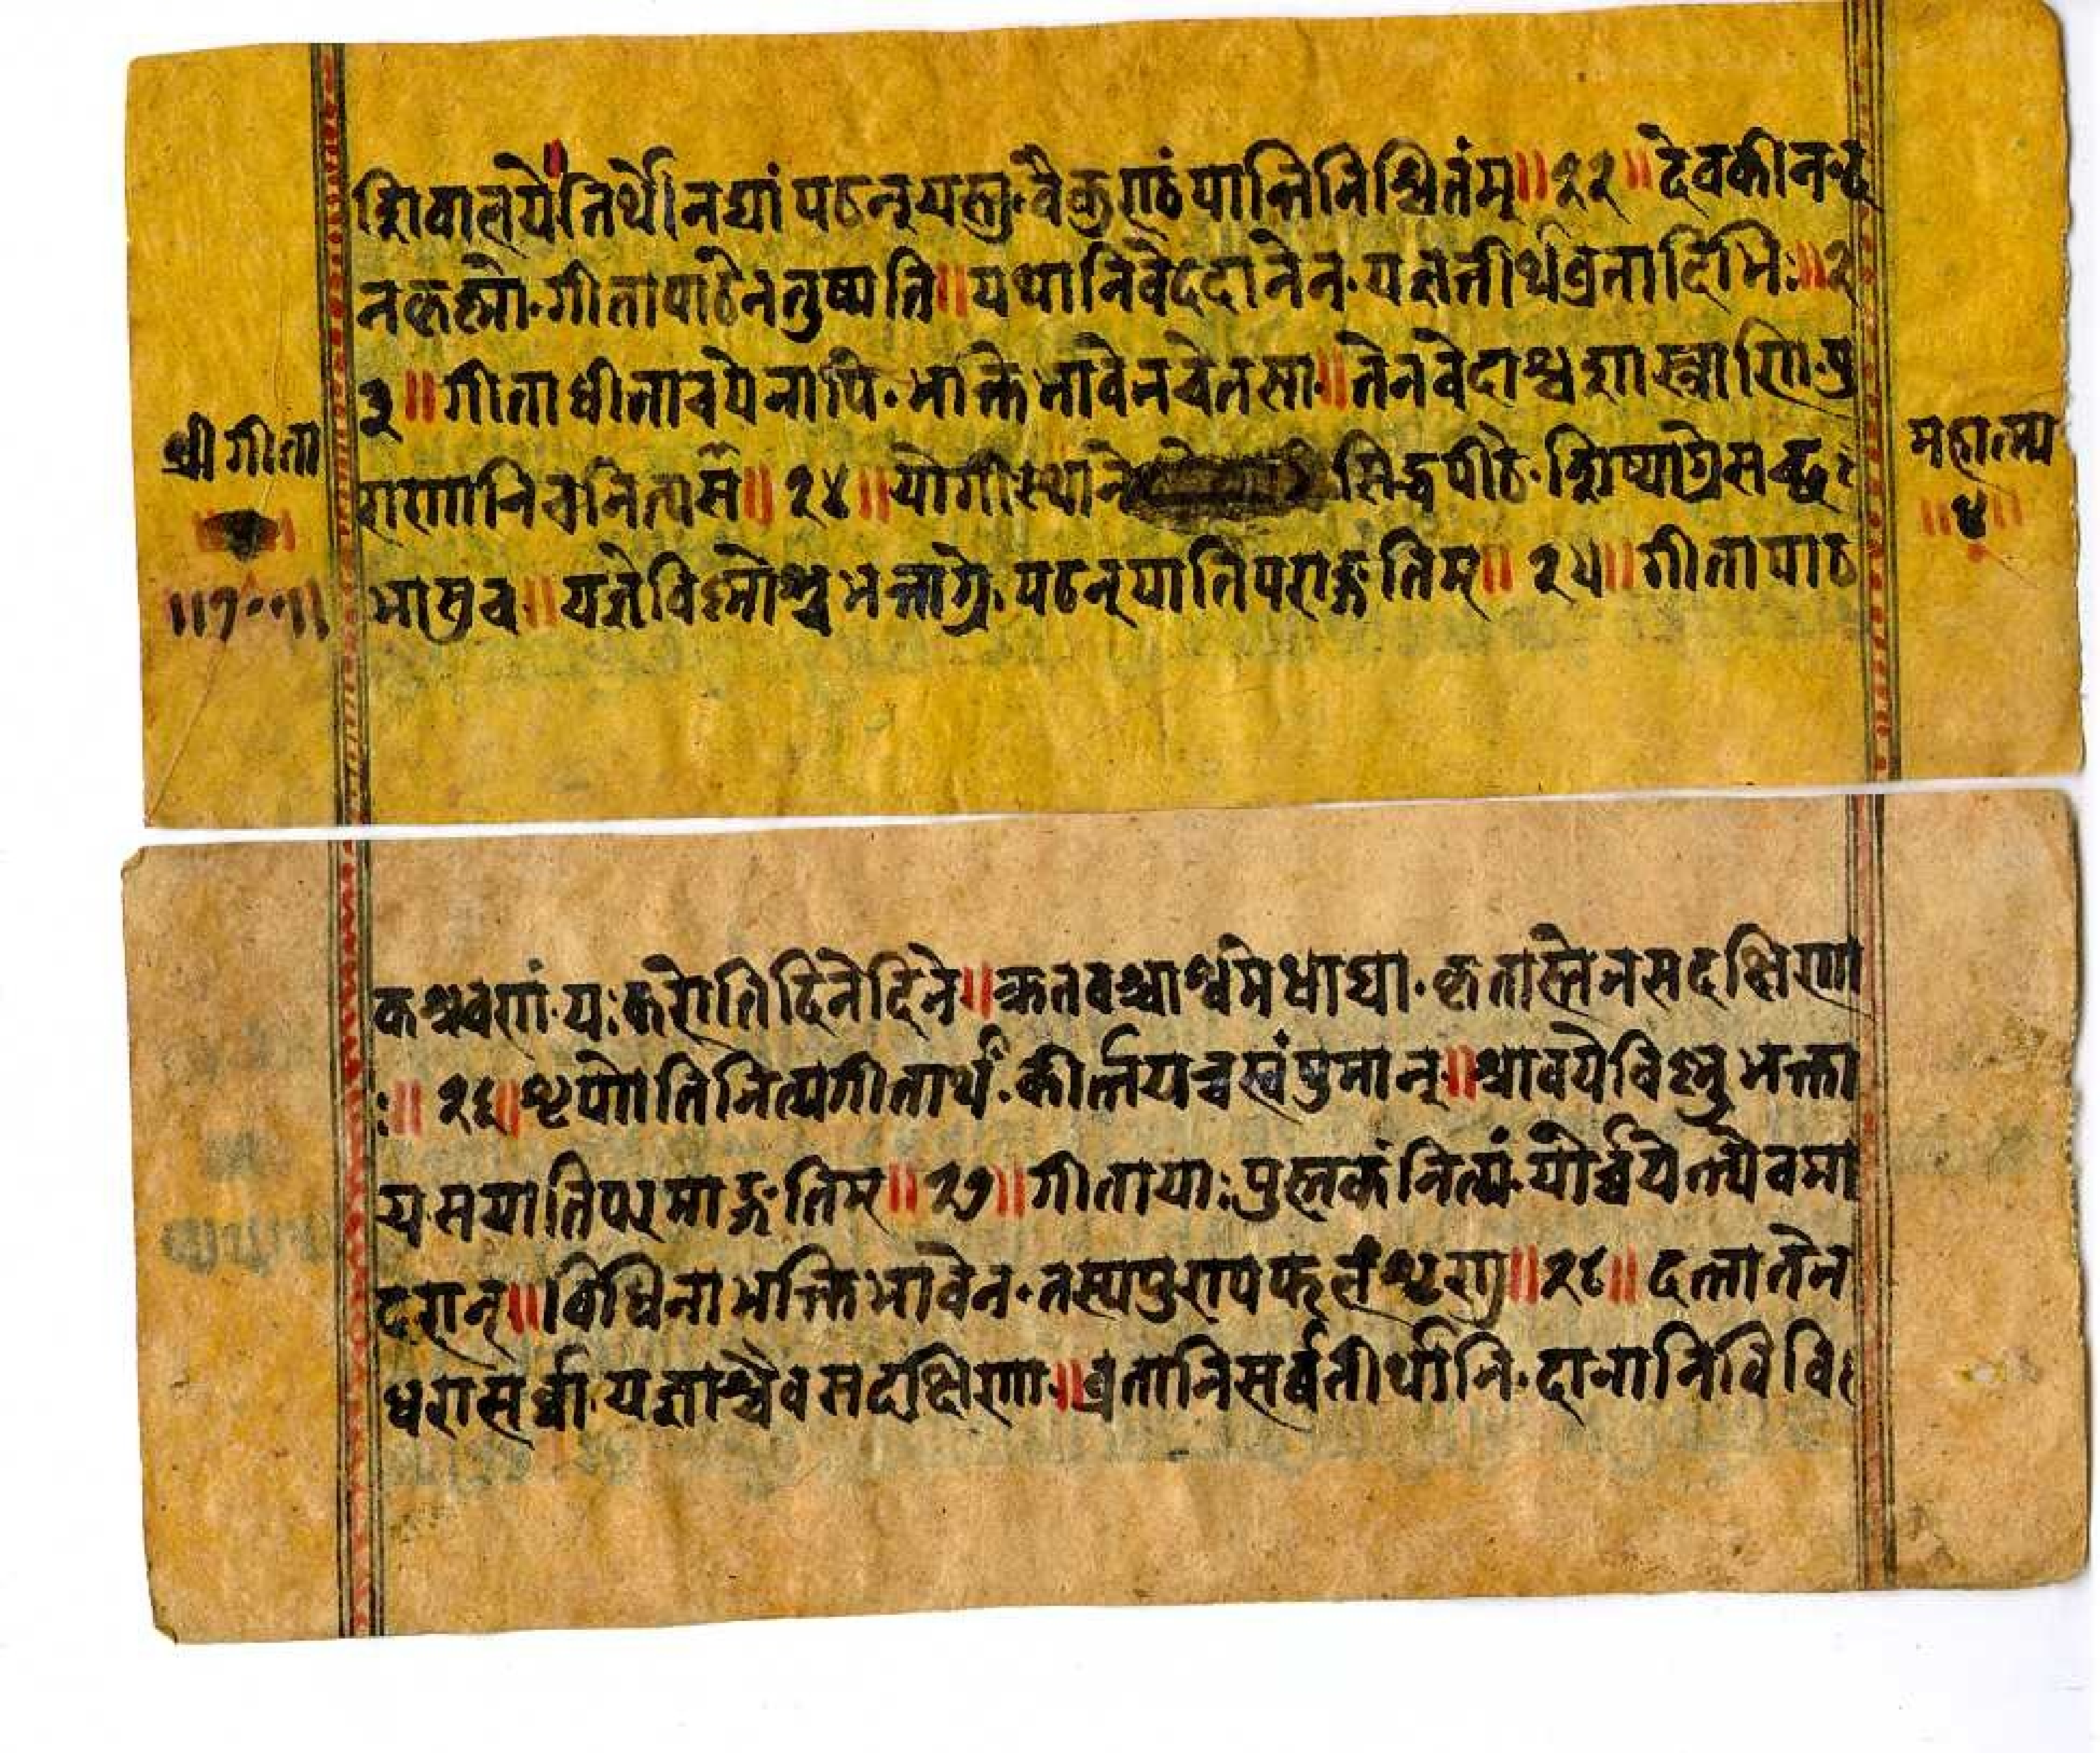 शिवालये तिर्थे नद्यां पठन् यस्तु वैकुण्ठं यान्ति निश्चितंम् ॥ २२ ॥ देवकीनन्द
न कृष्णो गीतापाठेन तुष्यति ॥ यथा निवेददानेन यज्ञतीर्थव्रतादिभिः ॥ २
३ ॥ गीताधीता च येनापि भक्तिभावेन चेतसा ॥ तेन वेदाश्च शास्त्राणि पु
श्री गीता
राणानि च नित्यसं ॥ २४ ॥ योगीस्थाने सिद्धपीठे शिष्याग्रे सद्ध
महात्म्य
॥ ४ ॥
भासु च ॥ यज्ञे विष्णोश्च भक्ताग्रे पठन् याति पराङ्गतिम् ॥ २५ ॥ गीतापाठ
कश्रवणं यः करोति दिने दिने ॥ क्रतवश्चाश्वमेधाद्या कृतास्तेन सदक्षिणा
ः ॥ २६ ॥ शृणोति नित्यगीतार्थं कीर्त्तयच्च स्वं पुमान् ॥ श्रावये विष्णुभक्ता
य स याति परमाङ्गतिम् ॥ २७ ॥ गीतायाः पुस्तकं नित्यं योर्च्चयेत्यैवमा
दरान् ॥ विधिना भक्तिभावेन तस्य पुण्यफलं शृणु ॥ २८ ॥ दत्ता तेन
धरा सर्व्वा यज्ञाश्चैव सदक्षिणा ॥ व्रतानि सर्व्वतीर्थानि दानानि विवि